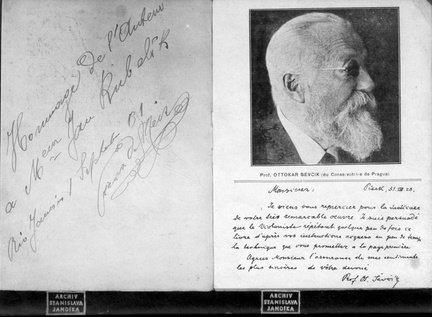 Hommage de l'Auteur
a Mr Jan Kubelik
Rio Janeiro 1 Septbr
Prof. OTTOKAR SEVCIK (du Conservatoire de Prague)
Monsieur. Písek,
Je viens vous remercier pour la
de votre très remarcable oeuvre. Je suis persuadé
que le Violoniste répétant quelque peu de fois ce
livre d'après vos instructions acquera en peu de temps
la technique que vous promettez a la page première.
Agréez Monsieur l'assurance de mes sentiments
les plus sincères de votre devoué
Prof. O. Ševčík
ARCHIV
STANISLAVA
JANDÍKA
ARCHIV
STANISLAVA
JANDÍKA